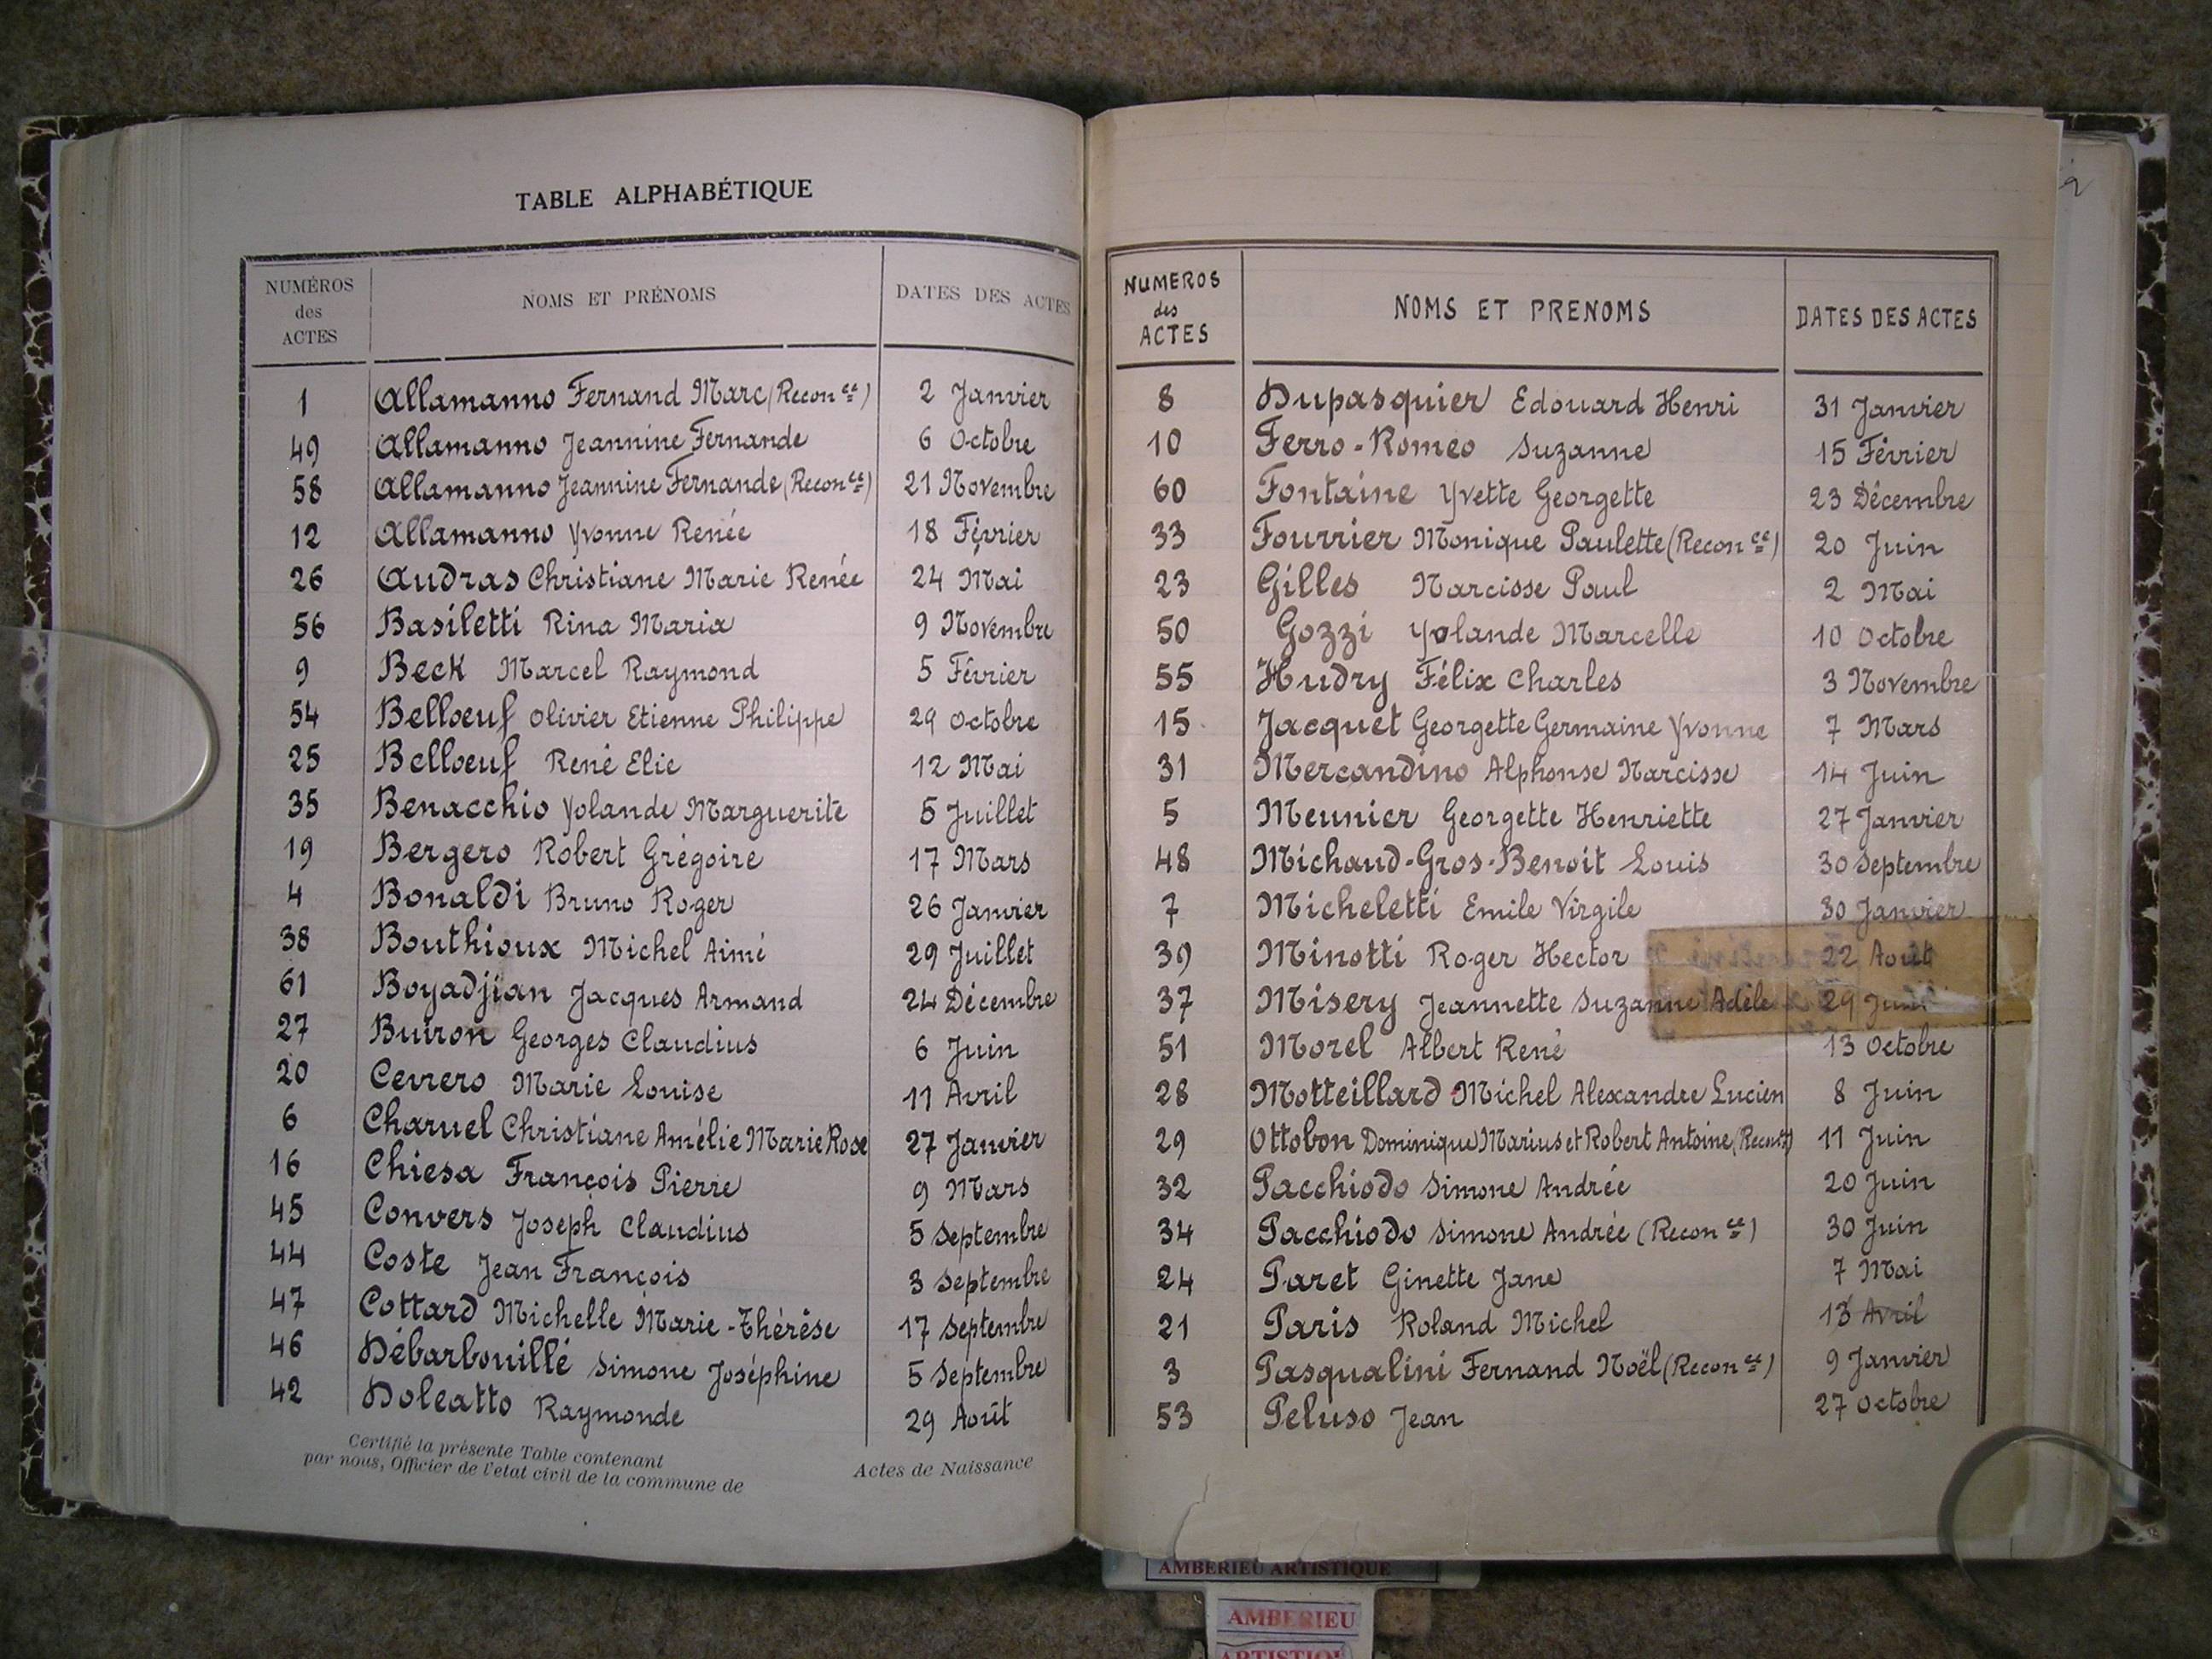 TABLE ALPHABÉTIQUE
NUMÉROS des ACTES NOMS ET PRÉNOMS DATES DES ACTES
1 Allamanno Fernand Marc (Recon ce) 2 Janvier
49 Allamanno Jeannine Fernande 6 Octobre
58 Allamanno Jeannine Fernande (Recon ce) 21 Novembre
12 Allamanno Yvonne Renée 18 Février
26 Audras Christiane Marie Renée 24 Mai
56 Basiletti Rina Maria 9 Novembre
9 Beck Marcel Raymond 5 Février
54 Belloeuf Olivier Etienne Philippe 29 Octobre
25 Belloeuf René Elie 12 Mai
35 Benacchio Yolande Marguerite 5 Juillet
19 Bergero Robert Grégoire 17 Mars
4 Bonaldi Bruno Roger 26 Janvier
38 Bouthioux Michel Aimé 29 Juillet
61 Boyadjian Jacques Armand 24 Décembre
27 Buiron Georges Claudius 6 Juin
20 Cerrero Marie Louise 11 Avril
6 Charuel Christiane Amélie Marie Rose 27 Janvier
16 Chiesa François Pierre 9 Mars
45 Convers Joseph Claudius 5 Septembre
44 Coste Jean François 3 Septembre
47 Cottard Michelle Marie-Thérèse 17 Septembre
46 Débarbouillé Simone Joséphine 5 Septembre
42 Doleatto Raymonde 29 Août
Certifié la présente Table contenant Actes de Naissance
par nous, Officier de l'etat civil de la commune de
NUMEROS des ACTES NOMS ET PRENOMS DATES DES ACTES
8 Dupasquier Edouard Henri 31 Janvier
10 Ferro-Romeo Suzanne 15 Février
60 Fontaine Yvette Georgette 23 Décembre
33 Fourrier Monique Paulette (Recon ce) 20 Juin
23 Gilles Narcisse Paul 2 Mai
50 Gozzi Yolande Marcelle 10 Octobre
55 Hudry Félix Charles 3 Novembre
15 Jacquet Georgette Germaine Yvonne 7 Mars
31 Mercandino Alphonse Narcisse 14 Juin
5 Meunier Georgette Henriette 27 Janvier
48 Michaud-Gros-Benoit Louis 30 Septembre
7 Micheletti Emile Virgile 30 Janvier
39 Minotti Roger Hector 22 Août
37 Misery Jeannette Suzanne Adèle 29
51 Morel Albert René 13 Octobre
28 Motteillard Michel Alexandre Lucien 8 Juin
29 Ottobon Dominique Marius et Robert Antoine 11 Juin
32 Pacchiodo Simone Andrée 20 Juin
34 Pacchiodo Simone Andrée (Recon ce) 30 Juin
24 Paret Ginette Jane 7 Mai
21 Paris Roland Michel 13 Avril
3 Pasqualini Fernand Noël (Recon ce) 9 Janvier
53 Peluso Jean 27 Octobre
AMBERIEU ARTISTIQUE
AMBERIEU